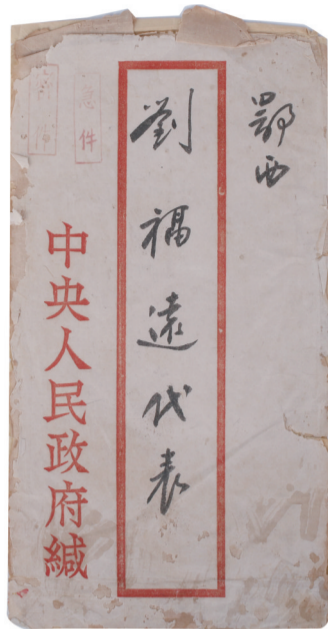 鄂西
劉福遠代表
急件
中央人民政府緘